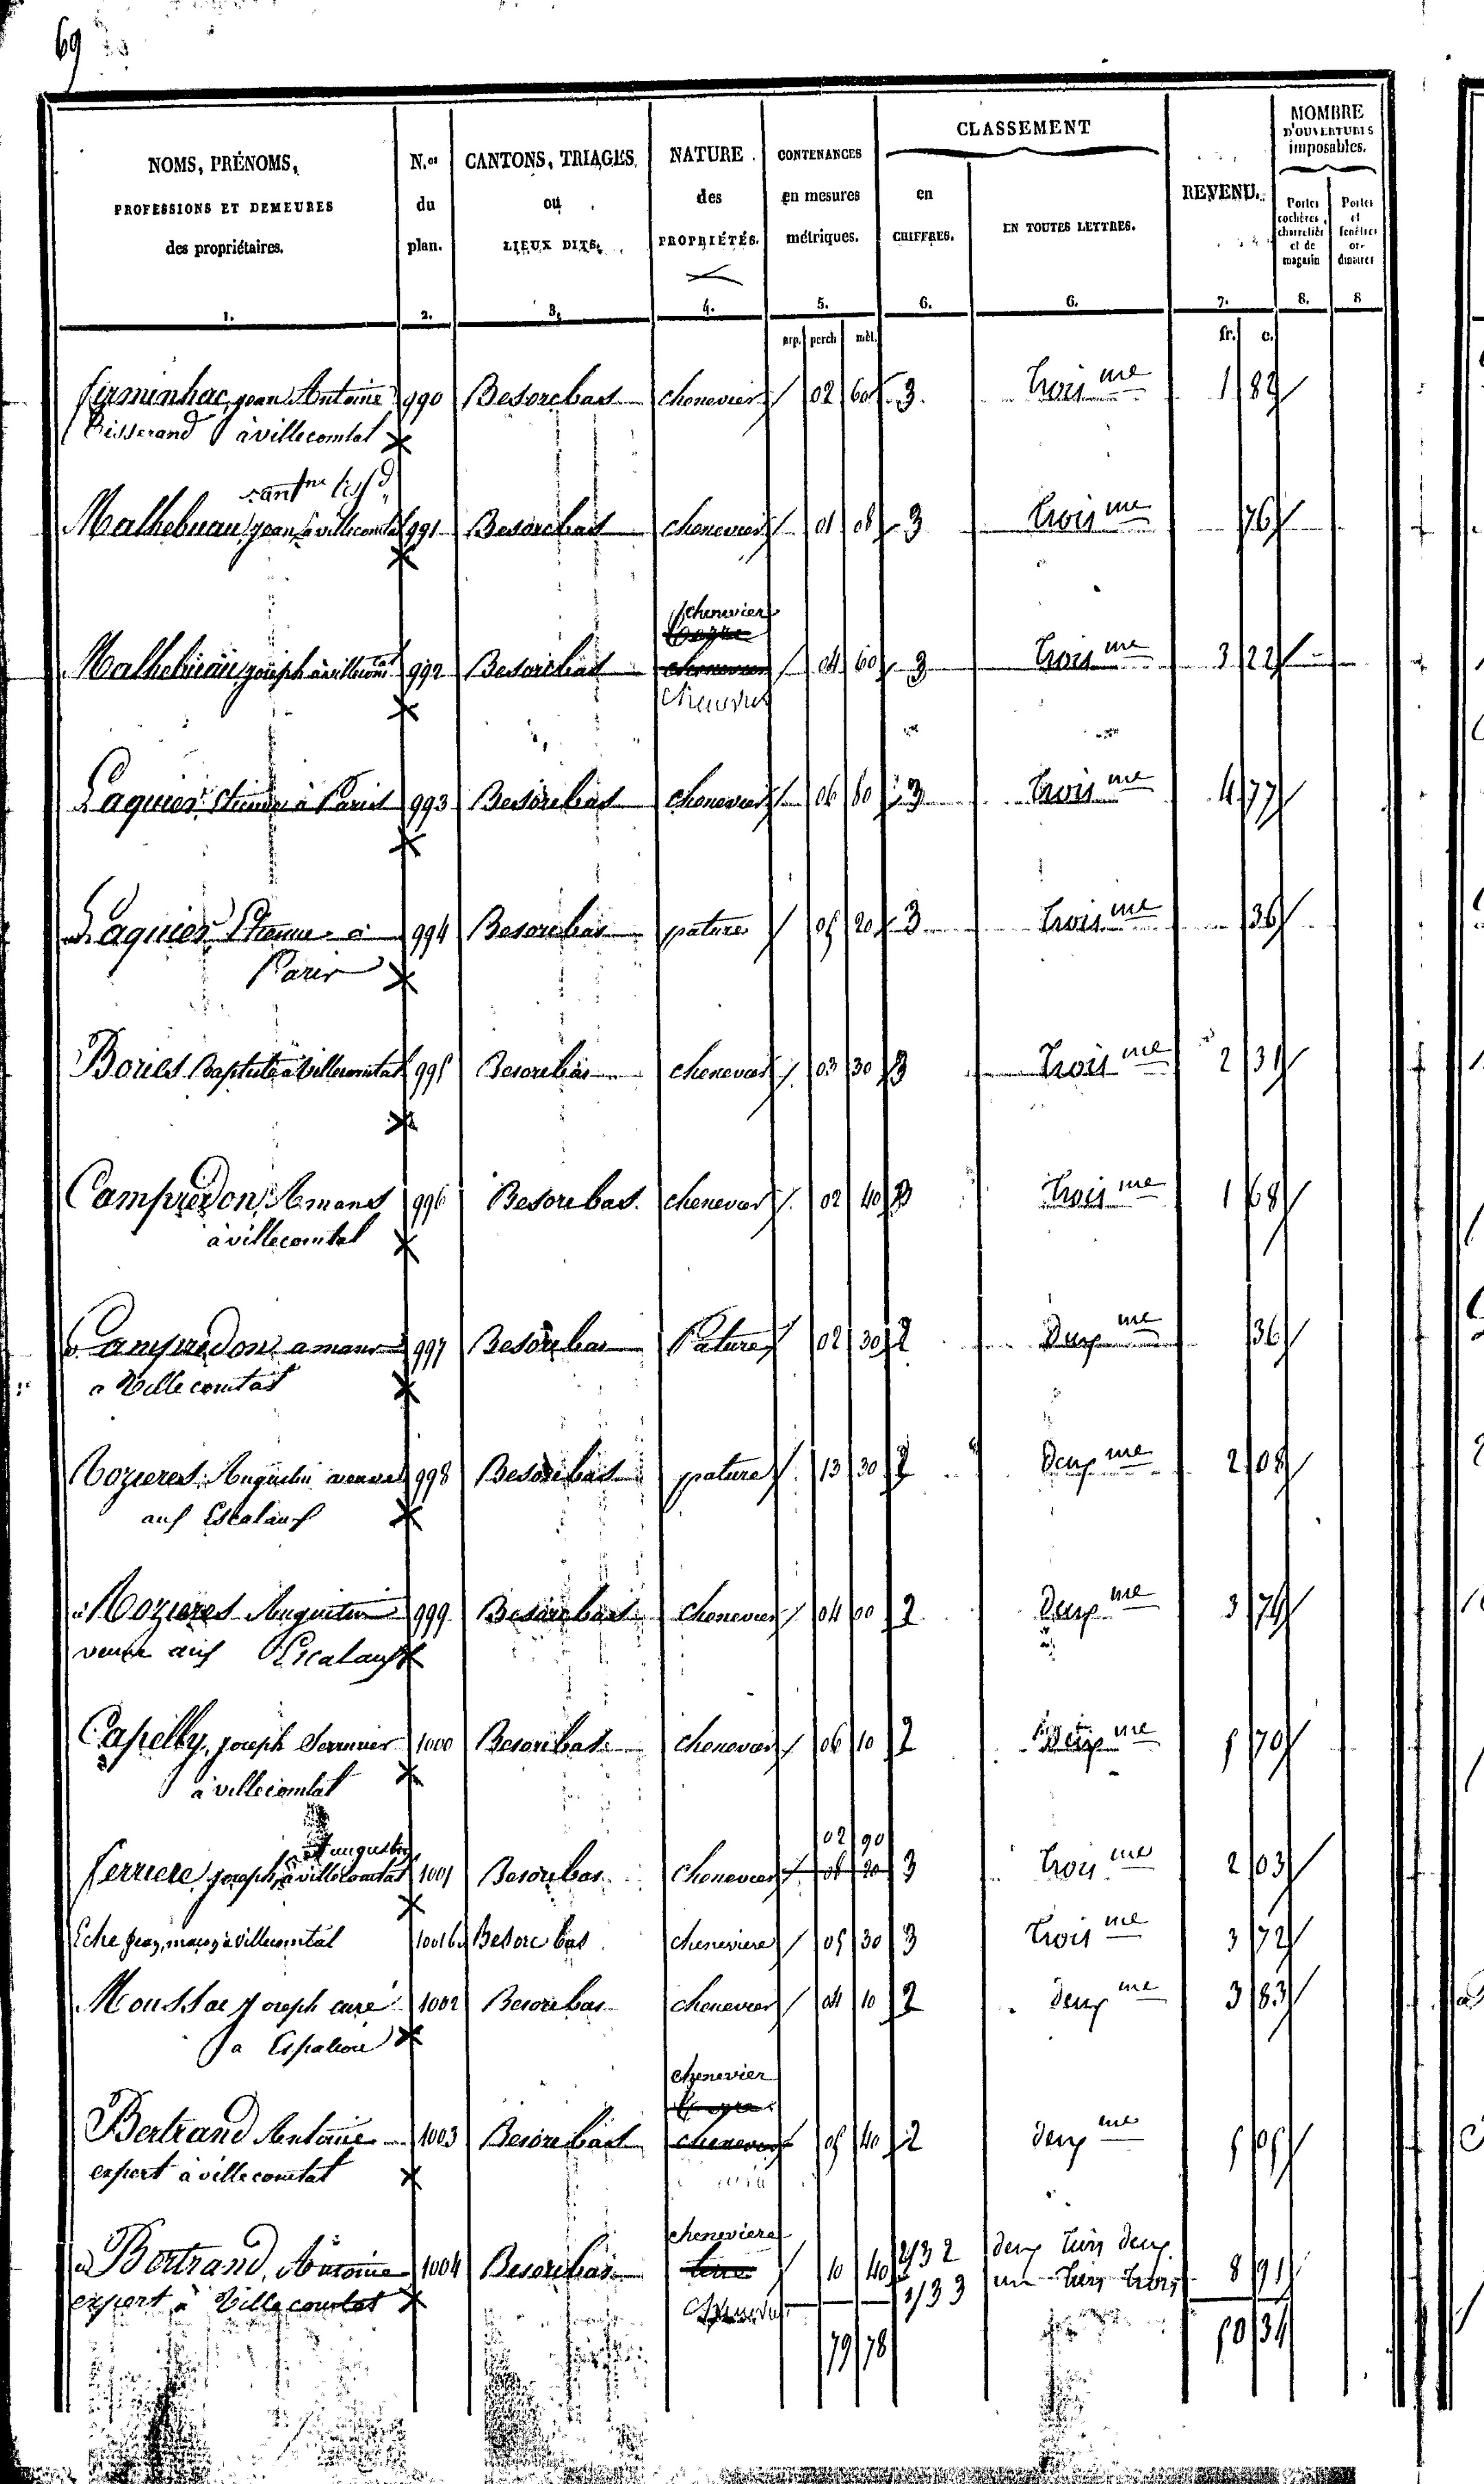 69
NOMS, PRÉNOMS, PROFESSIONS ET DEMEURES des propriétaires. 1.
N.os du plan. 2.
CANTONS, TRIAGES, ou LIEUX DITS. 3.
NATURE des PROPRIÉTÉS. 4.
CONTENANCES en mesures métriques. 5.
CLASSEMENT
en CHIFFRES. 6.
EN TOUTES LETTRES. 6.
REVENU. 7.
NOMBRE D'OUVERTURES imposables.
Portes cochères, charretières et de magasin 8.
Portes et fenêtres ordinaires 8
arp. perch mèt. fr. c.
Firminhac, jean Antoine 990 Besorebas chenevier 02 60 3 trois me 1 82
tisserand à villecomtal
Malhebuau jean à villecomtal 991 Besorebas chenevier 01 08 3 trois me 76
chenevier
Malhebuau joseph à villecomtal 992 Besorebas chenevier 04 60 3 trois me 3 22
Laquier Etienne à Paris 993 Besorebas chenevier 06 80 3 trois me 4 77
Laquier Etienne à 994 Besorebas pature 05 20 3 trois me 36
Paris
Bories Baptiste à villecomtal 995 Besorebas chenevier 03 30 3 trois me 2 31
Campredon, Amans 996 Besorebas chenevier 02 40 3 trois me 1 68
à villecomtal
Campredon amans 997 Besorebas Pature 02 30 2 deux me 36
a Villecomtal
Nozieres Augustin 998 Besorebas pature 13 30 2 deux me 2 08
aux Escalaux
Nozieres Augustin 999 Besorebas chenevier 04 00 2 deux me 3 74
aux Escalaux
Capelly, joseph Serrurier 1000 Besorebas chenevier 06 10 2 deux me 5 70
à villecomtal
augustin 02 90
Ferriere joseph à villecomtal 1001 Besorebas chenevier 08 20 3 trois me 2 03
Eche jean, maçon à villecomtal 1001 b Besore bas cheneviere 05 30 3 trois me 3 72
Moussac joseph curé 1002 Besorebas chenevier 04 10 2 deux me 3 83
a Espalion
chenevier
Bertrand Antoine 1003 Besorebas chenevier 05 40 2 deux me 5 05
expert à villecomtal
cheneviere
Bertrand, Antoine 1004 Besorebas terre 10 40 2/3 2 deux tiers deux 8 91
expert à Villecomtal 1/3 3 un tiers trois
79 78 50 34